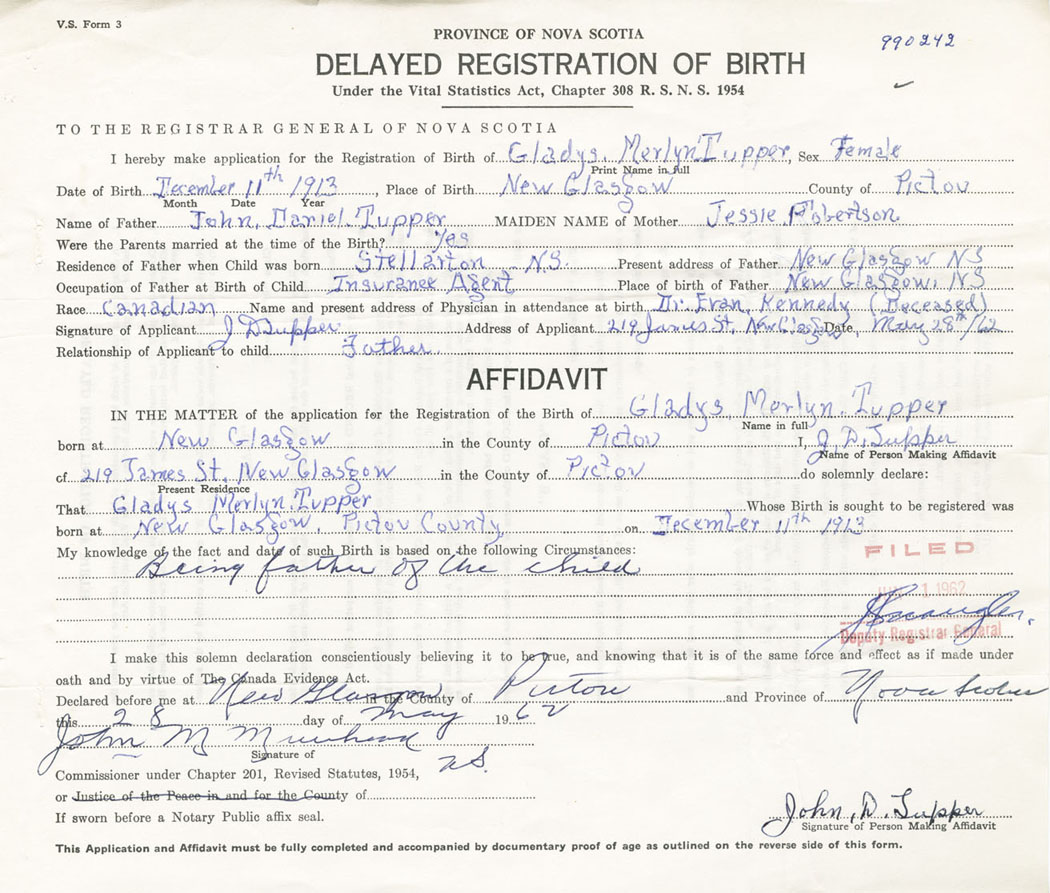 V.S. Form 3
PROVINCE OF NOVA SCOTIA
990242
DELAYED REGISTRATION OF BIRTH
Under the Vital Statistics Act, Chapter 308 R. S. N. S. 1954
TO THE REGISTRAR GENERAL OF NOVA SCOTIA
I hereby make application for the Registration of Birth of Gladys, Merlyn Tupper, Sex Female
Print Name in full
Date of Birth December 11th 1913, Place of Birth New Glasgow County of Pictou
Month Date Year
Name of Father John, Daniel Tupper MAIDEN NAME of Mother Jessie Robertson
Were the Parents married at the time of the Birth? Yes
Residence of Father when Child was born Stellarton N.S. Present address of Father New Glasgow NS
Occupation of Father at Birth of Child Insurance Agent Place of birth of Father New Glasgow, NS
Race Canadian Name and present address of Physician in attendance at birth Dr. Evan, Kennedy (Deceased)
Signature of Applicant J D Tupper Address of Applicant 219, James St, New Glasgow Date, May 28th/62
Relationship of Applicant to child Father
AFFIDAVIT
IN THE MATTER of the application for the Registration of the Birth of Gladys, Merlyn. Tupper
Name in full
born at New Glasgow in the County of Pictou I, J. D. Tupper
Name of Person Making Affidavit
of 219 James St, New Glasgow in the County of Pictou do solemnly declare:
Present Residence
That Gladys Merlyn. Tupper Whose Birth is sought to be registered was
born at New Glasgow, Pictou County on December 11th 1913
My knowledge of the fact and date of such Birth is based on the following Circumstances:
Being father of the child
FILED
1 1962
Deputy Registrar General
I make this solemn declaration conscientiously believing it to be true, and knowing that it is of the same force and effect as if made under
oath and by virtue of The Canada Evidence Act.
Declared before me at New Glasgow in the County of Pictou and Province of Nova Scotia
this 28 day of May 1962
John M Muirhead
Signature of
Commissioner under Chapter 201, Revised Statutes, 1954, NS.
or Justice of the Peace in and for the County of
If sworn before a Notary Public affix seal.
John, D. Tupper
Signature of Person Making Affidavit
This Application and Affidavit must be fully completed and accompanied by documentary proof of age as outlined on the reverse side of this form.